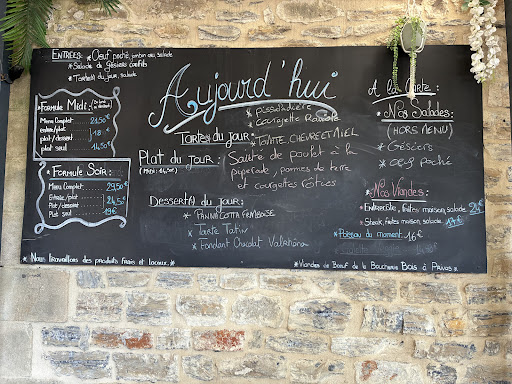 ENTREES: * Oeuf poché, jambon cru, salade
* Salade de gésiers confits
* Tarte du jour, salade
Aujourd'hui
* Pissaladière
* Courgette Ravioles
Tartes du Jour: * TOMATE CHEVRE MIEL
Plat du Jour: Sauté de poulet à la
(Midi: 14,50€) piperade, pommes de terre
et courgettes rôties
Dessert du Jour:
* PANNA COTTA FRAMBOISE
* Tarte Tatin
* Fondant Chocolat Valrhona
* FORMULE MIDI:
Menu Complet ..... 21,50€
Entrée/plat
plat/dessert ..... 18€
plat seul ..... 14,50€
* FORMULE SOIR:
Menu Complet ..... 29,50€
Entrée/plat
Plat/dessert ..... 24,5€
Plat seul ..... 19€
A la Carte:
* Nos Salades:
(HORS MENU)
* Gésiers
* Oeuf poché
* Nos Viandes:
* Entrecôte, frites maison, salade 24€
* Steak, frites maison, salade
* Poisson du moment: 16€
* Nous travaillons des produits frais et locaux. *
* VIANDES DE BOEUF DE LA BOUCHERIE BOIS À PRIVAS *